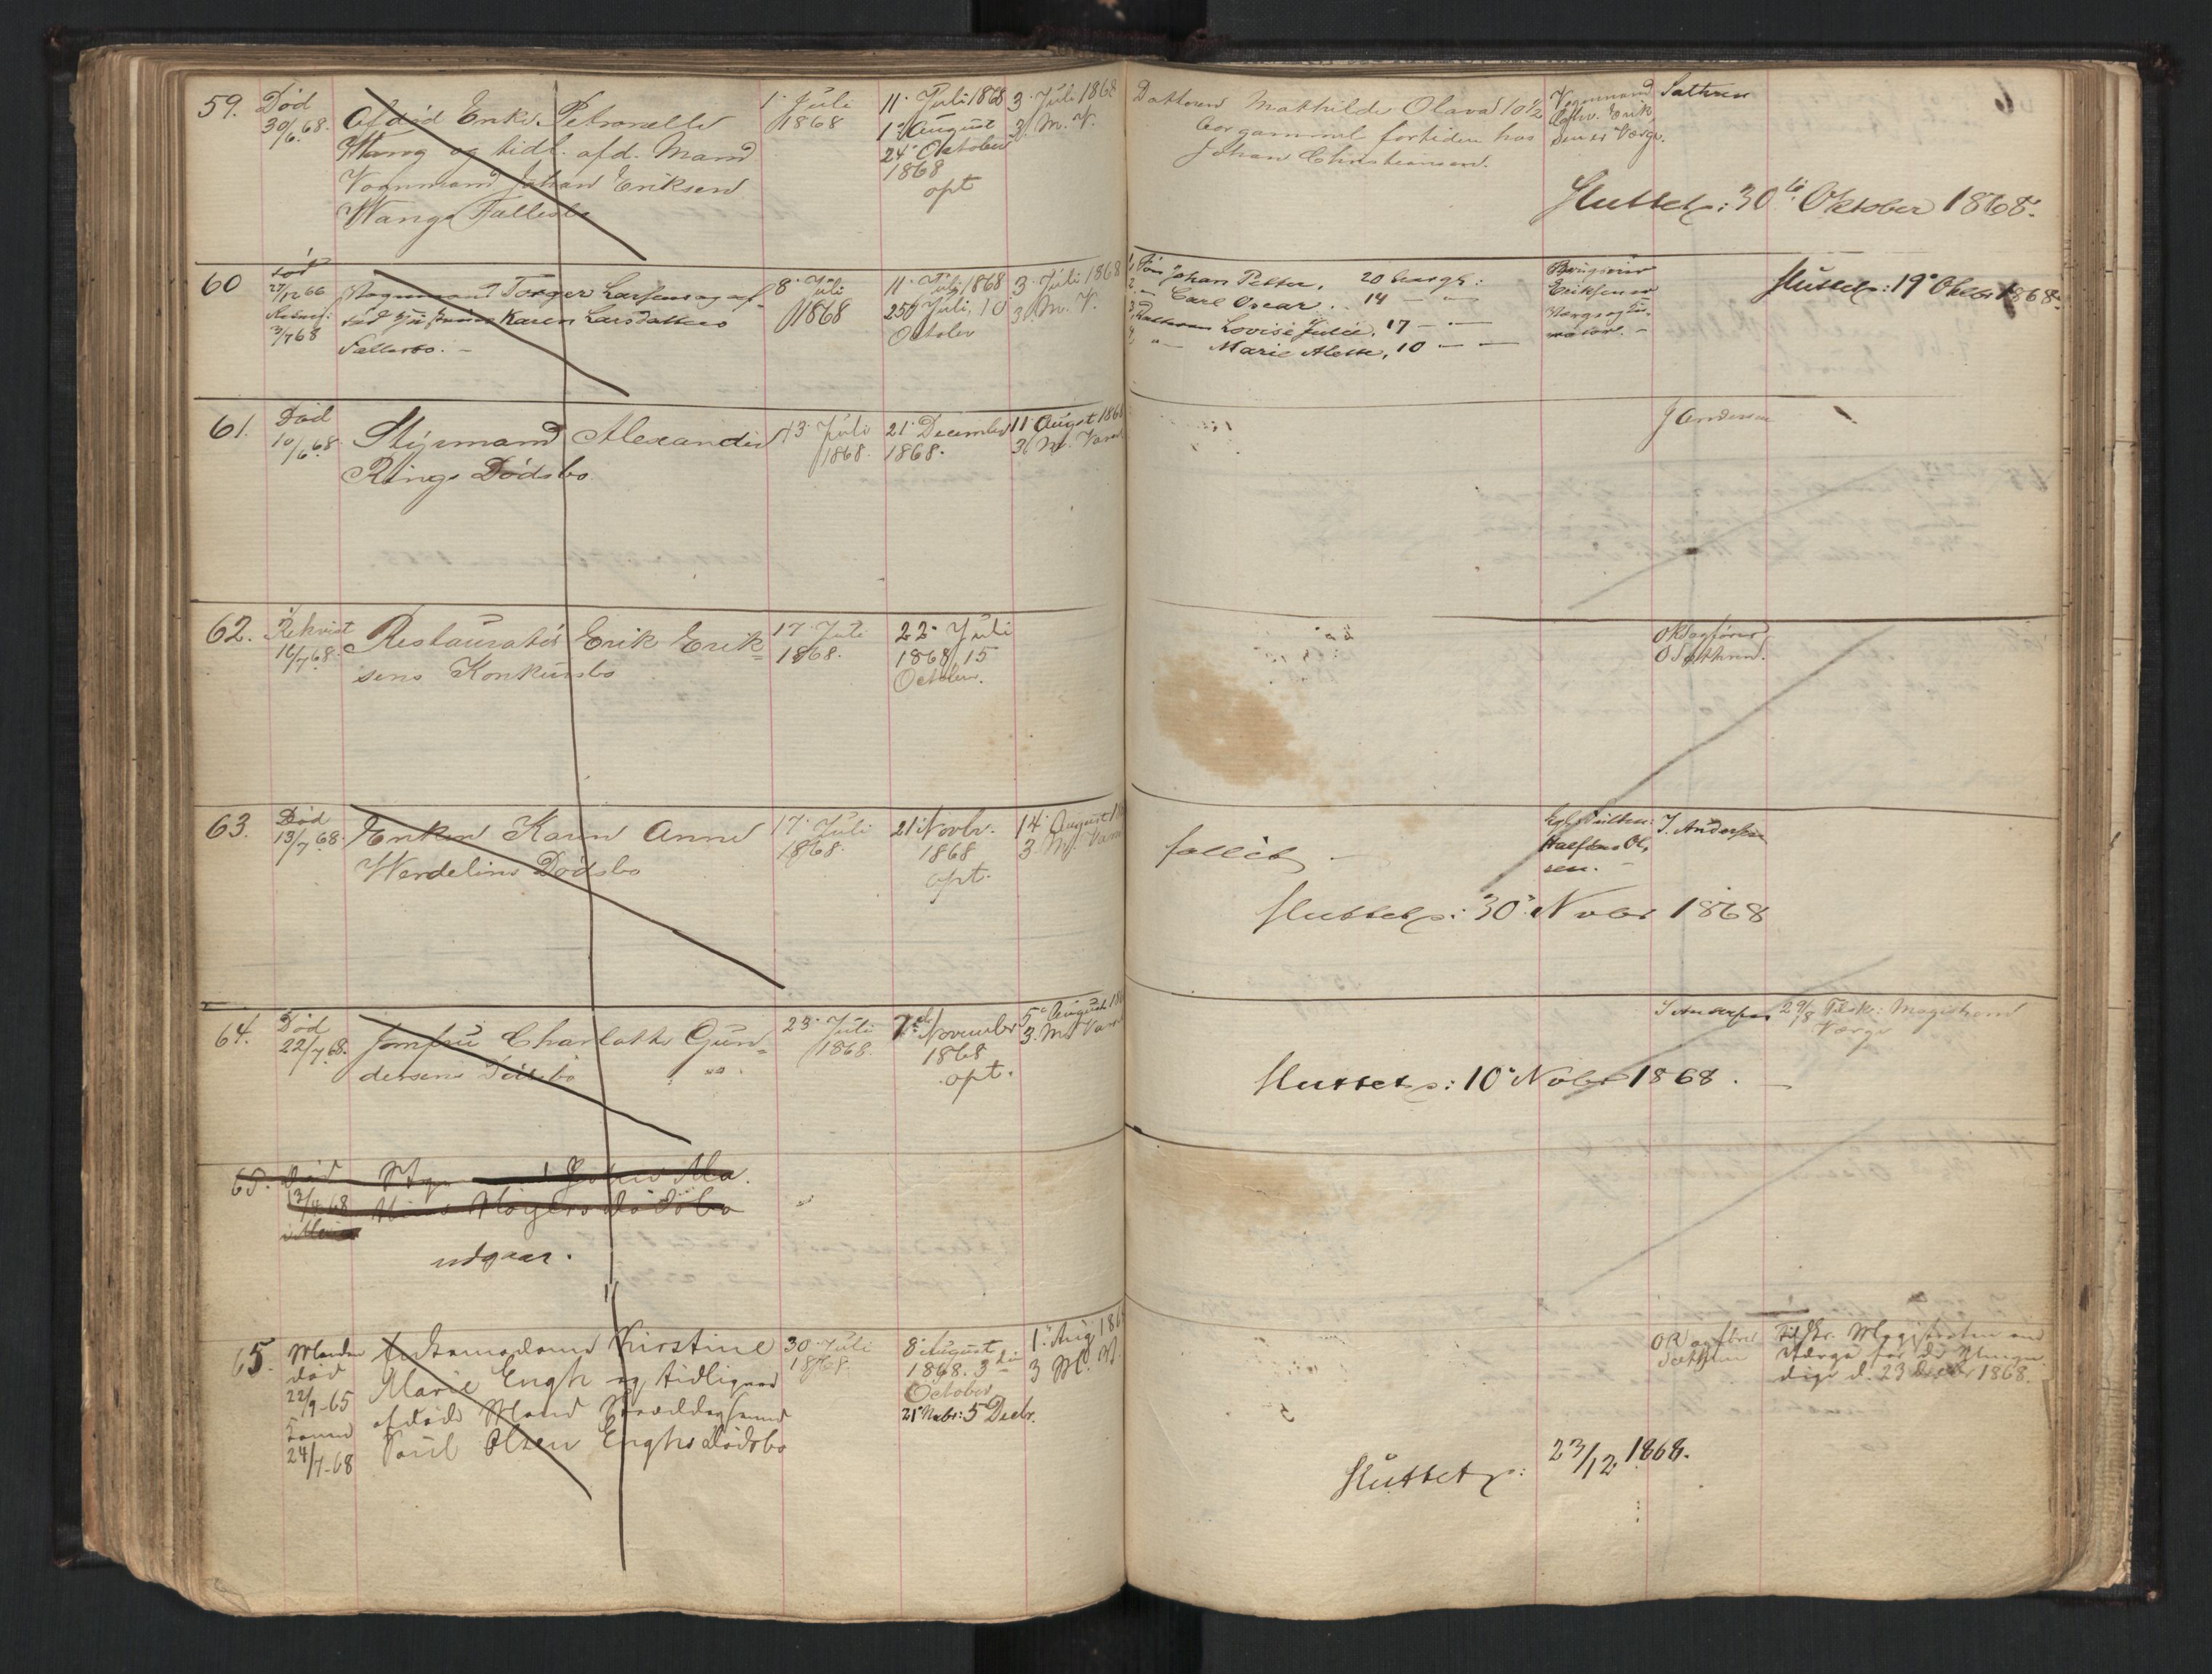 59. Død
30/6 68.
Afdød Enke Petronelle
Wang og tidl. afd. Mand
Vognmand Johan Eriksen
Wangs Fællesbo
1. Juli
1868
11. Juli 1868
1. August
24. Oktober
1868
opt
3. Juli 1868
3. M. V.
Datteren Mathilde Olava 10½
Aar gammel fortiden hos
Johan Christiansen.
Vognmand
Erik
sen er Værge.
Sathren
Sluttet: 30te Oktober 1868.
60
død
27/12 66
3/7 68
Vognmand Torger Larsens og af-
død Karen Larsdatters
Fællesbo. -
8. Juli
1868
11. Juli 1868
25. Juli, 10
October
3. Juli 1868
3. M. V.
1, Søn Johan Petter, 20 Aar gl:
2, — Carl Oscar. 14 — —
3, Datteren Lovise Julie, 17 — —
4, — Marie Alette, 10 — —
Eriksen er
Sluttet: 19 Oktbr 1868.
61.
Død
10/6 68.
Styrmand Alexander
Rings Dødsbo
13. Juli
1868.
21. December
1868.
11. August 1868
3 M. Varsel
J Andersen
62.
Rekvist
16/7 68.
Restauratør Erik Erik=
sens Konkursbo
17. Juli
1868.
22. Juli
1868, 15
October.
ORsagfører
O Sathren.
63.
Død
13/7 68.
Enken Karen Anne
Werdelins Dødsbo
17. Juli
1868.
21 Novbr.
1868
opt.
14. August
3. M. Varsel
fallit —
Halfdan Ol,
sen. -
J. Andersen
Sluttet: 30. Novbr 1868
64.
Død
22/7 68.
Jomfru Charlotte Gun=
dersens Dødsbo
23. Juli
1868.
7de November
1868
opt.
5. August
3. M. Varsel
J Andersen
29/8 Tilsk: Magistraten
Værge
Sluttet: 10. Novbr 1868. —
65. Død
udgaar.
65.
Manden
død
22/9-65
Konen
24/7-68
Enkemadame Kirstine
Marie Engh og tidligere
afdøde Mand
Poul Olsen Enghs Dødsbo
30. Juli
1868.
8. August
1868. 3die
October
21. Nvbr: 5 Decbr.
1. Aug 1868
3 M. V.
OR sagfører
Sathren
Tilskr. Magistraten om
Værge for de Umyn
dige d. 23 Decbr 1868.
Sluttet: 23/12 1868.